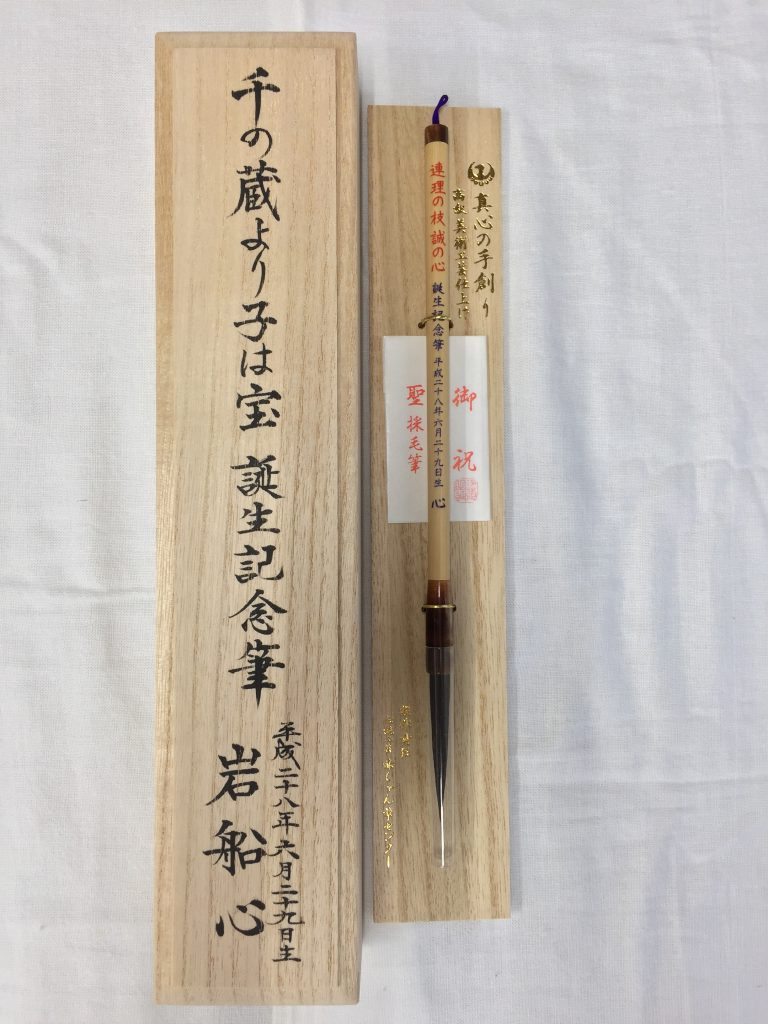 千の蔵より子は宝 誕生記念筆
平成二十八年六月二十九日生
岩船心
真心の手創り
高級美術工芸仕上げ
連理の枝誠の心 誕生記念筆 平成二十八年六月二十九日生 心
御祝
聖採毛筆